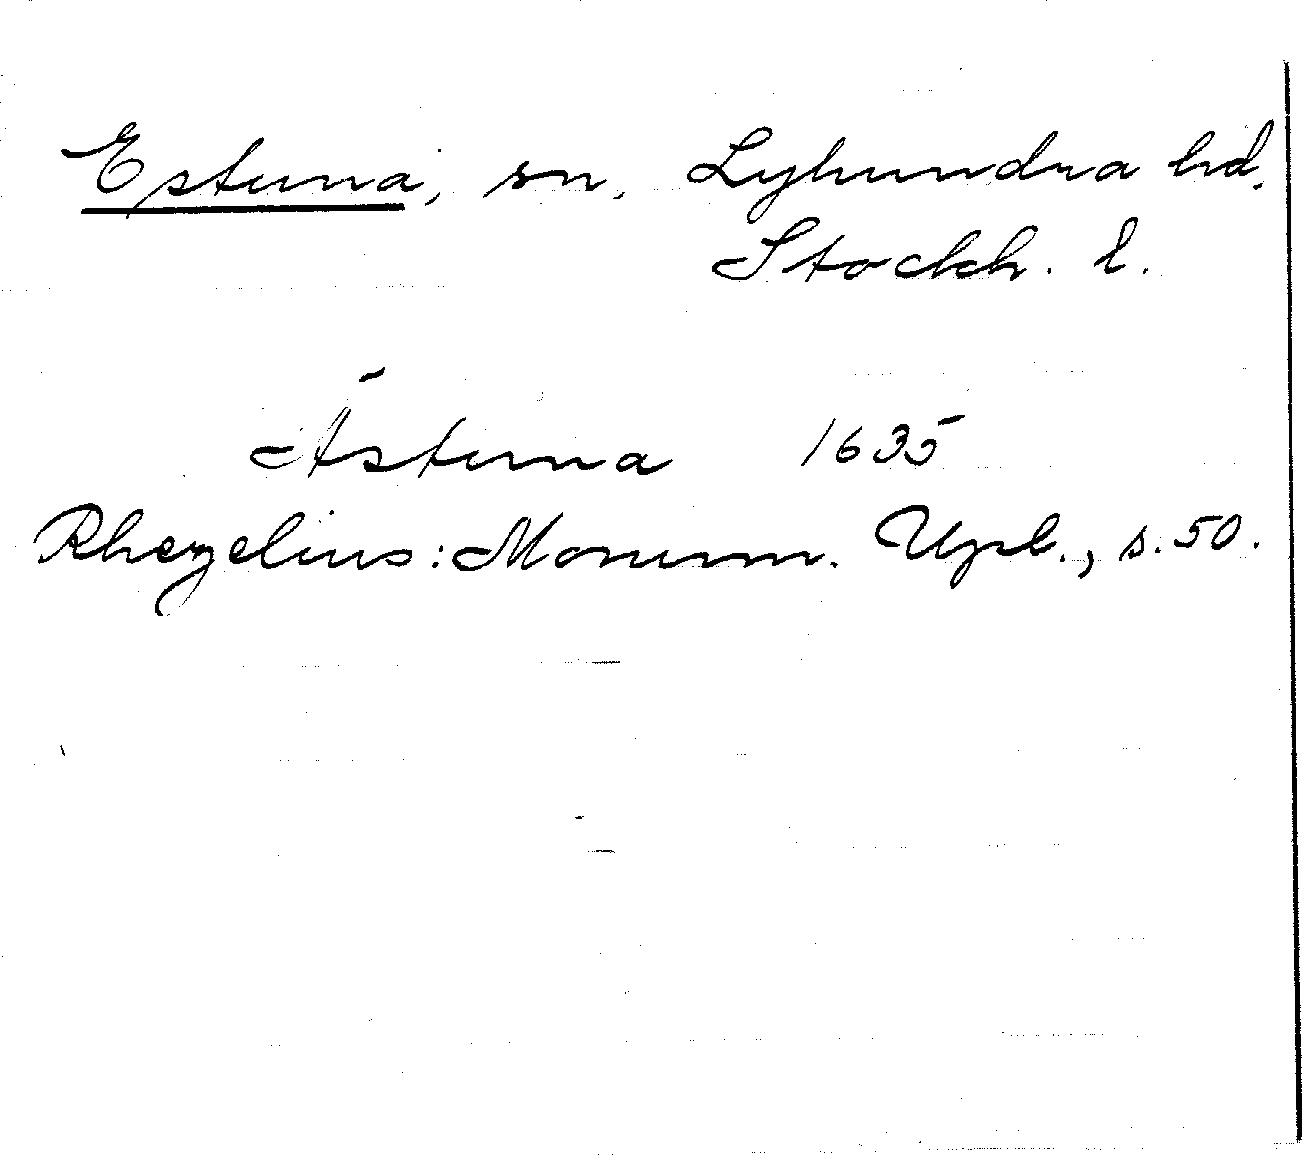 Estuna, sn, Lyhundra hd,
Stockh. l.
Ästuna 1635
Rhezelius: Monum. Upl., s. 50.